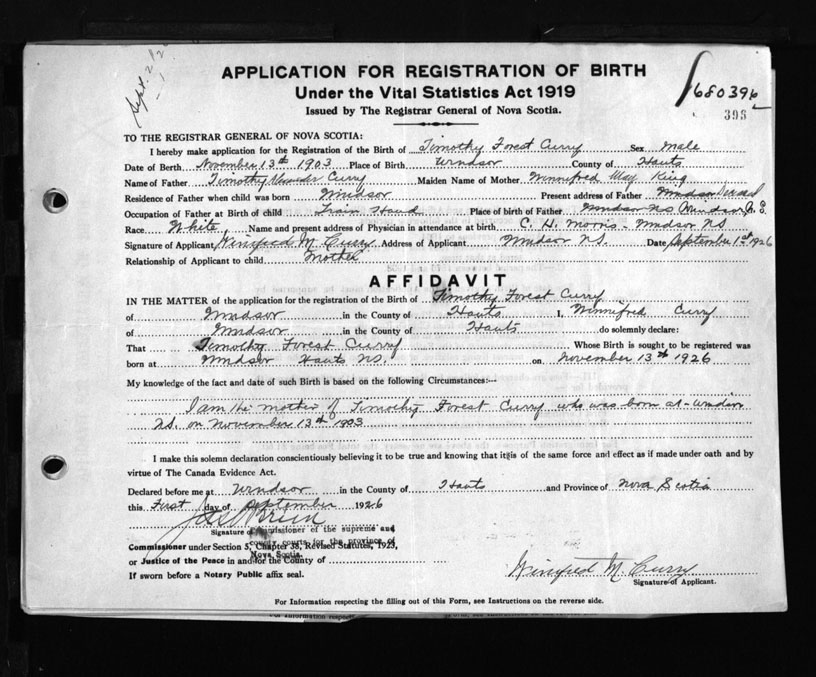 Sept. 2/26
APPLICATION FOR REGISTRATION OF BIRTH
Under the Vital Statistics Act 1919
Issued by The Registrar General of Nova Scotia.
680396
398
TO THE REGISTRAR GENERAL OF NOVA SCOTIA:
I hereby make application for the Registration of the Birth of Timothy Forest Curry Sex Male
Date of Birth November 13th 1903 Place of Birth Windsor County of Hants
Name of Father Timothy Curry Maiden Name of Mother Winnifred May King
Residence of Father when child was born Windsor Present address of Father Windsor
Occupation of Father at Birth of child Train Hand Place of birth of Father Windsor NS Windsor, N.S.
Race White, Name and present address of Physician in attendance at birth C. H. Morris - Windsor NS
Signature of Applicant Winifred M. Curry Address of Applicant Windsor N.S. Date September 1st 1926
Relationship of Applicant to child Mother
AFFIDAVIT
IN THE MATTER of the application for the registration of the Birth of Timothy Forest Curry
of Windsor in the County of Hants I, Winnifred Curry
of Windsor in the County of Hants do solemnly declare:
That Timothy Forest Curry Whose Birth is sought to be registered was
born at Windsor Hants N.S. on November 13th 1926
My knowledge of the fact and date of such Birth is based on the following Circumstances:—
I am the mother of Timothy Forest Curry who was born at Windsor
N.S. on November 13th 1903
I make this solemn declaration conscientiously believing it to be true and knowing that it is of the same force and effect as if made under oath and by
virtue of The Canada Evidence Act.
Declared before me at Windsor in the County of Hants and Province of Nova Scotia
this First day of September 1926
Signature of Commissioner of the supreme and
county courts for the province of
Nova Scotia.
Commissioner under Section 5, Chapter 38, Revised Statutes, 1923,
or Justice of the Peace in and for the County of
If sworn before a Notary Public affix seal.
Winifred M. Curry
Signature of Applicant.
For Information respecting the filling out of this Form, see Instructions on the reverse side.